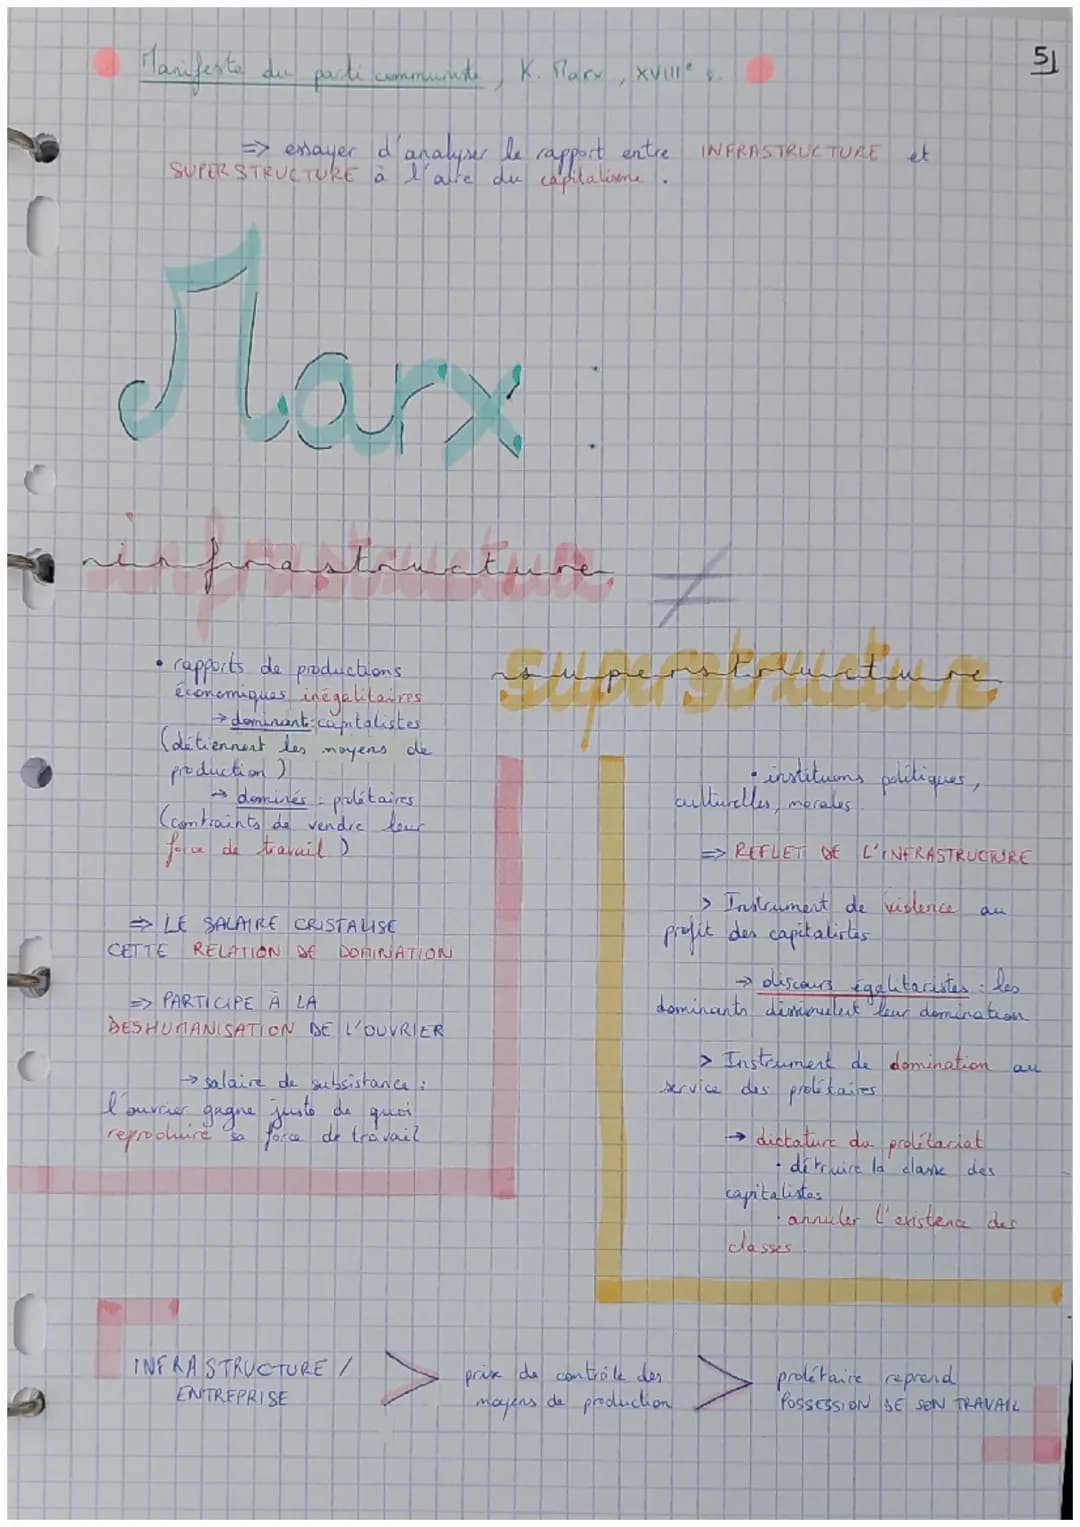 51
Manifeste du parti communiste, K. Marx, XVIIIe s.
=> essayer d'analyser le rapport entre INFRASTRUCTURE et
SUPERSTRUCTURE à l'aire du capitalisme.
Marx :
infrastructure ≠
superstructure
• rapports de productions
économiques inégalitaires
→ dominant : capitalistes
(détiennent les moyens de
production)
→ dominés : prolétaires
(contraints de vendre leur
force de travail)
=> LE SALAIRE CRISTALISE
CETTE RELATION DE DOMINATION
=> PARTICIPE À LA
DESHUMANISATION DE L'OUVRIER
→ salaire de subsistance :
l'ouvrier gagne juste de quoi
reproduire sa force de travail
• instituions politiques,
culturelles, morales
=> REFLET DE L'INFRASTRUCTURE
> Instrument de violence au
profit des capitalistes
→ discours égalitaristes : les
dominants dissimulent leur domination
> Instrument de domination au
service des prolétaires
→ dictature du prolétariat
• détruire la classe des
capitalistes
• annuler l'existence des
classes
INFRASTRUCTURE / > prise de contrôle des > prolétaire reprend
ENTREPRISE moyens de production POSSESSION DE SON TRAVAIL